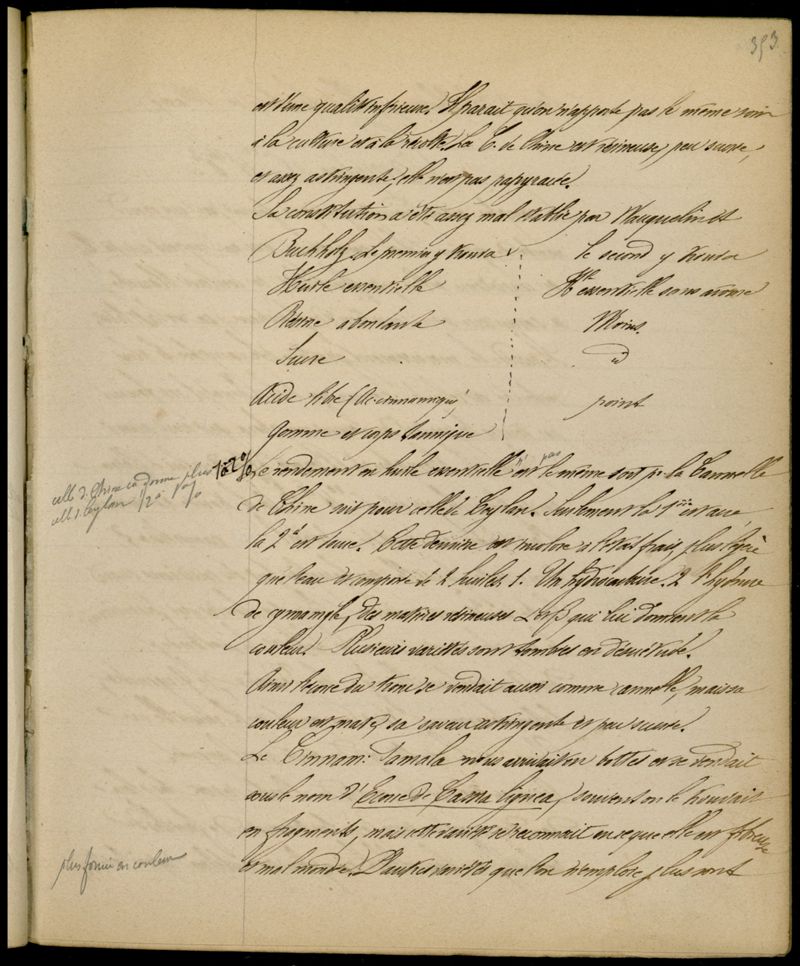 353
est d'une qualité inférieure. Il parait qu'on n'apporte pas le même soin
à la culture et à la récolte. La C. de Chine est résineuse, peu sucrée,
et assez astringente, elle n'est pas papyracée.
Sa constitution a été assez mal établie par Vauquelin et
Buchholz. Le premier y trouva le second y trouva
Huile essentielle Hle essentielle sans arome
Résine abondante Moins
Sucre d
Acide libre (Ac. cinnamique) point
Gomme et corps tannique
celle d. Chine en donne plus 1 à 2 %
celle d. Ceylan 1/2 à 1 %
Le rendement en huile essentielle n'est pas le même soit pr la Cannelle
de Chine soit pour celle de Ceylan. Seulement la 1ère est
la 2e est . Cette dernière est incolore à l'état frais, plus légère
que l'eau et composée de 2 huiles. 1. Un hydrocarbure. 2 l'hydrure
de cynnamyle, des matières résineuses qui lui donnent la
couleur. Plusieurs variétés sont tombées en désuétude.
Ainsi l'écorce du tronc se vendait aussi comme cannelle, mais sa
couleur est mate, sa saveur astringente et peu sucrée.
Le Cinnam: Tamala nous arrivait en bottes et se vendait
sous le nom d'Ecorce de Cassia lignea, souvent on le trouvait
en fragments, mais cette variété se reconnait en ce que elle est fibreuse
plus foncée en couleur
et mal mondée. D'autres variétés que l'on n'emploie plus sont